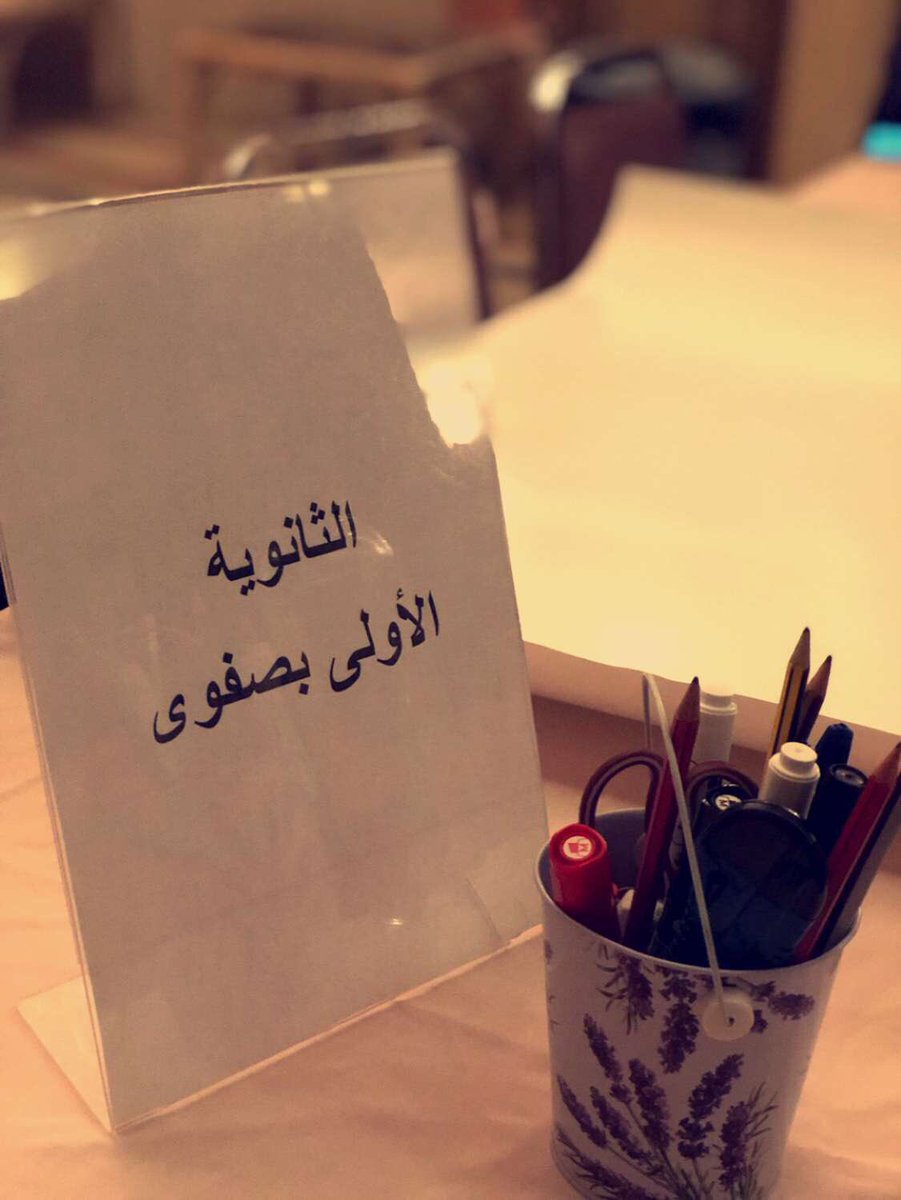 الثانوية
الأولى بصفوى